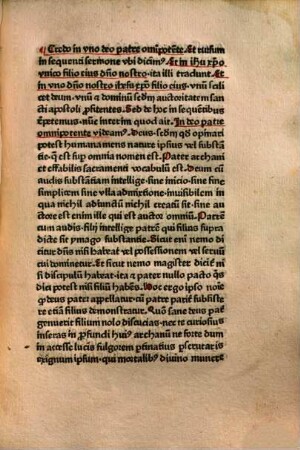 Credo in vno deo patre om̄ipotēte. Et rursum
in sequenti sermone vbi dicimꝰ. Et in ihū xp̄o
vnico filio eius dn̄o nostro. ita illi tradunt. Et
in vno dn̄o nostro ihesu xp̄o filio eius. vnū scili
cet deum. vnū ⁊ dominū scd̄m auctoritatem san
cti apostoli ꝓfitentes. Sed de hoc in sequentibus
repetemus. nūc interim quod ait. In deo patre
omnipotente videamꝰ. Deus. scd̄m ꝙ opinari
potest humana mens nature ipsius vel substā
tie. qd̄ est sup omnia nomen est. Pater archani
et effabilis sacramenti vocabulū est. Deum cū
audis substātiam intellige. sine inicio. sine fine
simplicem sine vlla admixtione. inuisibilem in
qua nichil adiunctū nichil creatū sit. sine au
ctore est enim ille qui est auctor omniū. Patrē
cum audis. filij intellige patrem qui filius supra
dicte sit ymago substantie. Sicut eni nemo di
citur dn̄s nisi habeat vel possessionem vel seruū
cui dominetur. Et sicut nemo magister dicit᷑ ni
si discipulū habeat. ita ⁊ pater nullo pacto qͥs
dici potest nisi filiū habēs. Hoc ergo ipso noīe
quo deus pater appellatur. cū patre parit᷑ subsiste
re etiā filius demonstratur. Quō sane deus pater
genuerit filium nolo discucias. nec te curiosius
inseras in ꝓfundi huiꝰ archanū ne forte dum
in accesse lucis fulgorem ꝑtinatius ꝑscrutaris
exignum ipsum. qui mortalibꝰ diuino munere